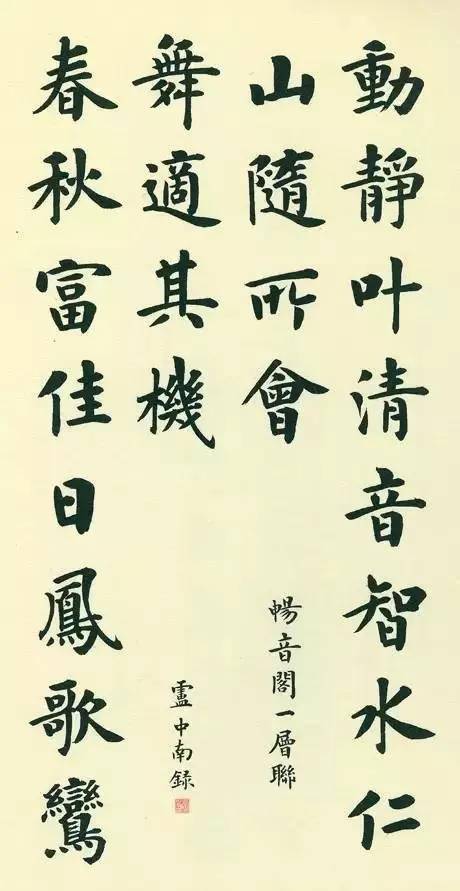 動靜叶清音智水仁
山隨所會
暢音閣一層聯
春秋富佳日鳳歌鸞
舞適其機
盧中南錄